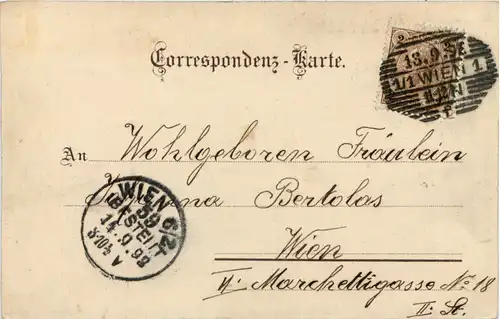 Correspondenz-Karte.
2
13.9.9
1/1 WIEN 1.
An Wohlgeboren Fräulein
Bertolas
Wien
Marchettigasse No 18
II: St.
WIEN 6/2
59
BESTELLT
14.9.98
V